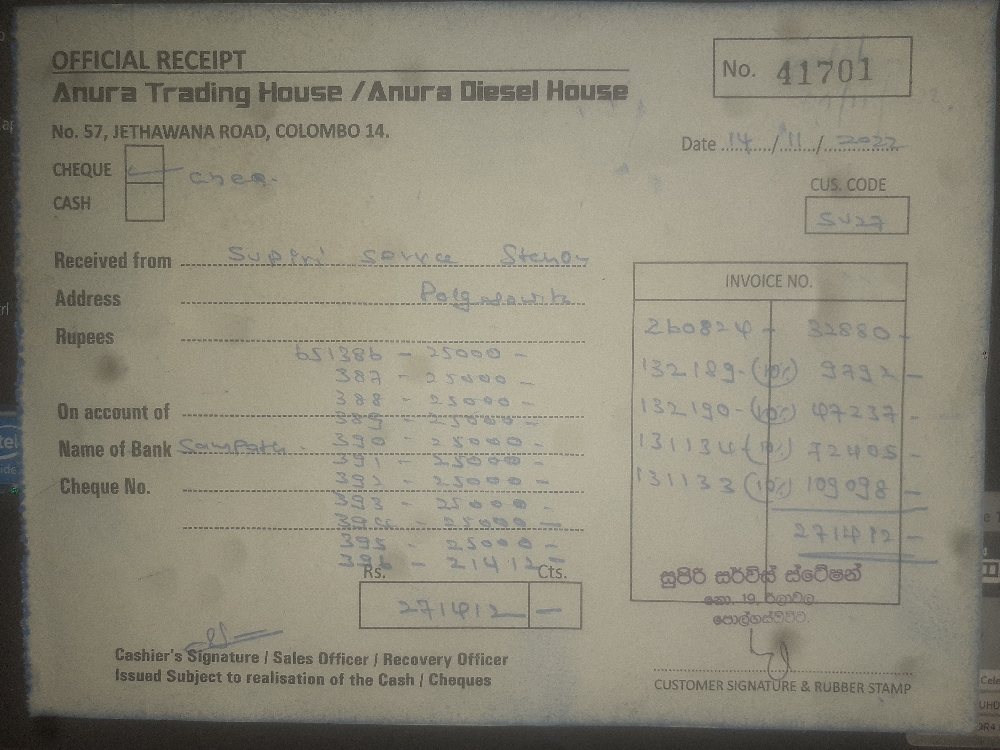 OFFICIAL RECEIPT
No. 41701
Anura Trading House / Anura Diesel House
No. 57, JETHAWANA ROAD, COLOMBO 14.
Date 14/11/2022
CHEQUE
CASH
CUS. CODE
SU27
Received from Supiri service Station
Address
Rupees
651386 - 25000 -
387 - 25000 -
388 - 25000 -
On account of 389 - 25000 -
Name of Bank Sampath. 390 - 25000 -
391 - 25000 -
Cheque No. 392 - 25000 -
393 - 25000 -
394 - 25000 -
395 - 25000 -
396 - 21412 -
Rs. Cts.
271412 -
INVOICE NO.
260824 - 32880 -
132189 - (10%) 9792 -
132190 - (10%) 47237 -
131134 (10%) 72405 -
131133 (10%) 109098 -
271412 -
සුපිරි සර්විස් ස්ටේෂන්
නො. 19,
පොල්ගස්ඕවිට.
Cashier's Signature / Sales Officer / Recovery Officer
Issued Subject to realisation of the Cash / Cheques
CUSTOMER SIGNATURE & RUBBER STAMP